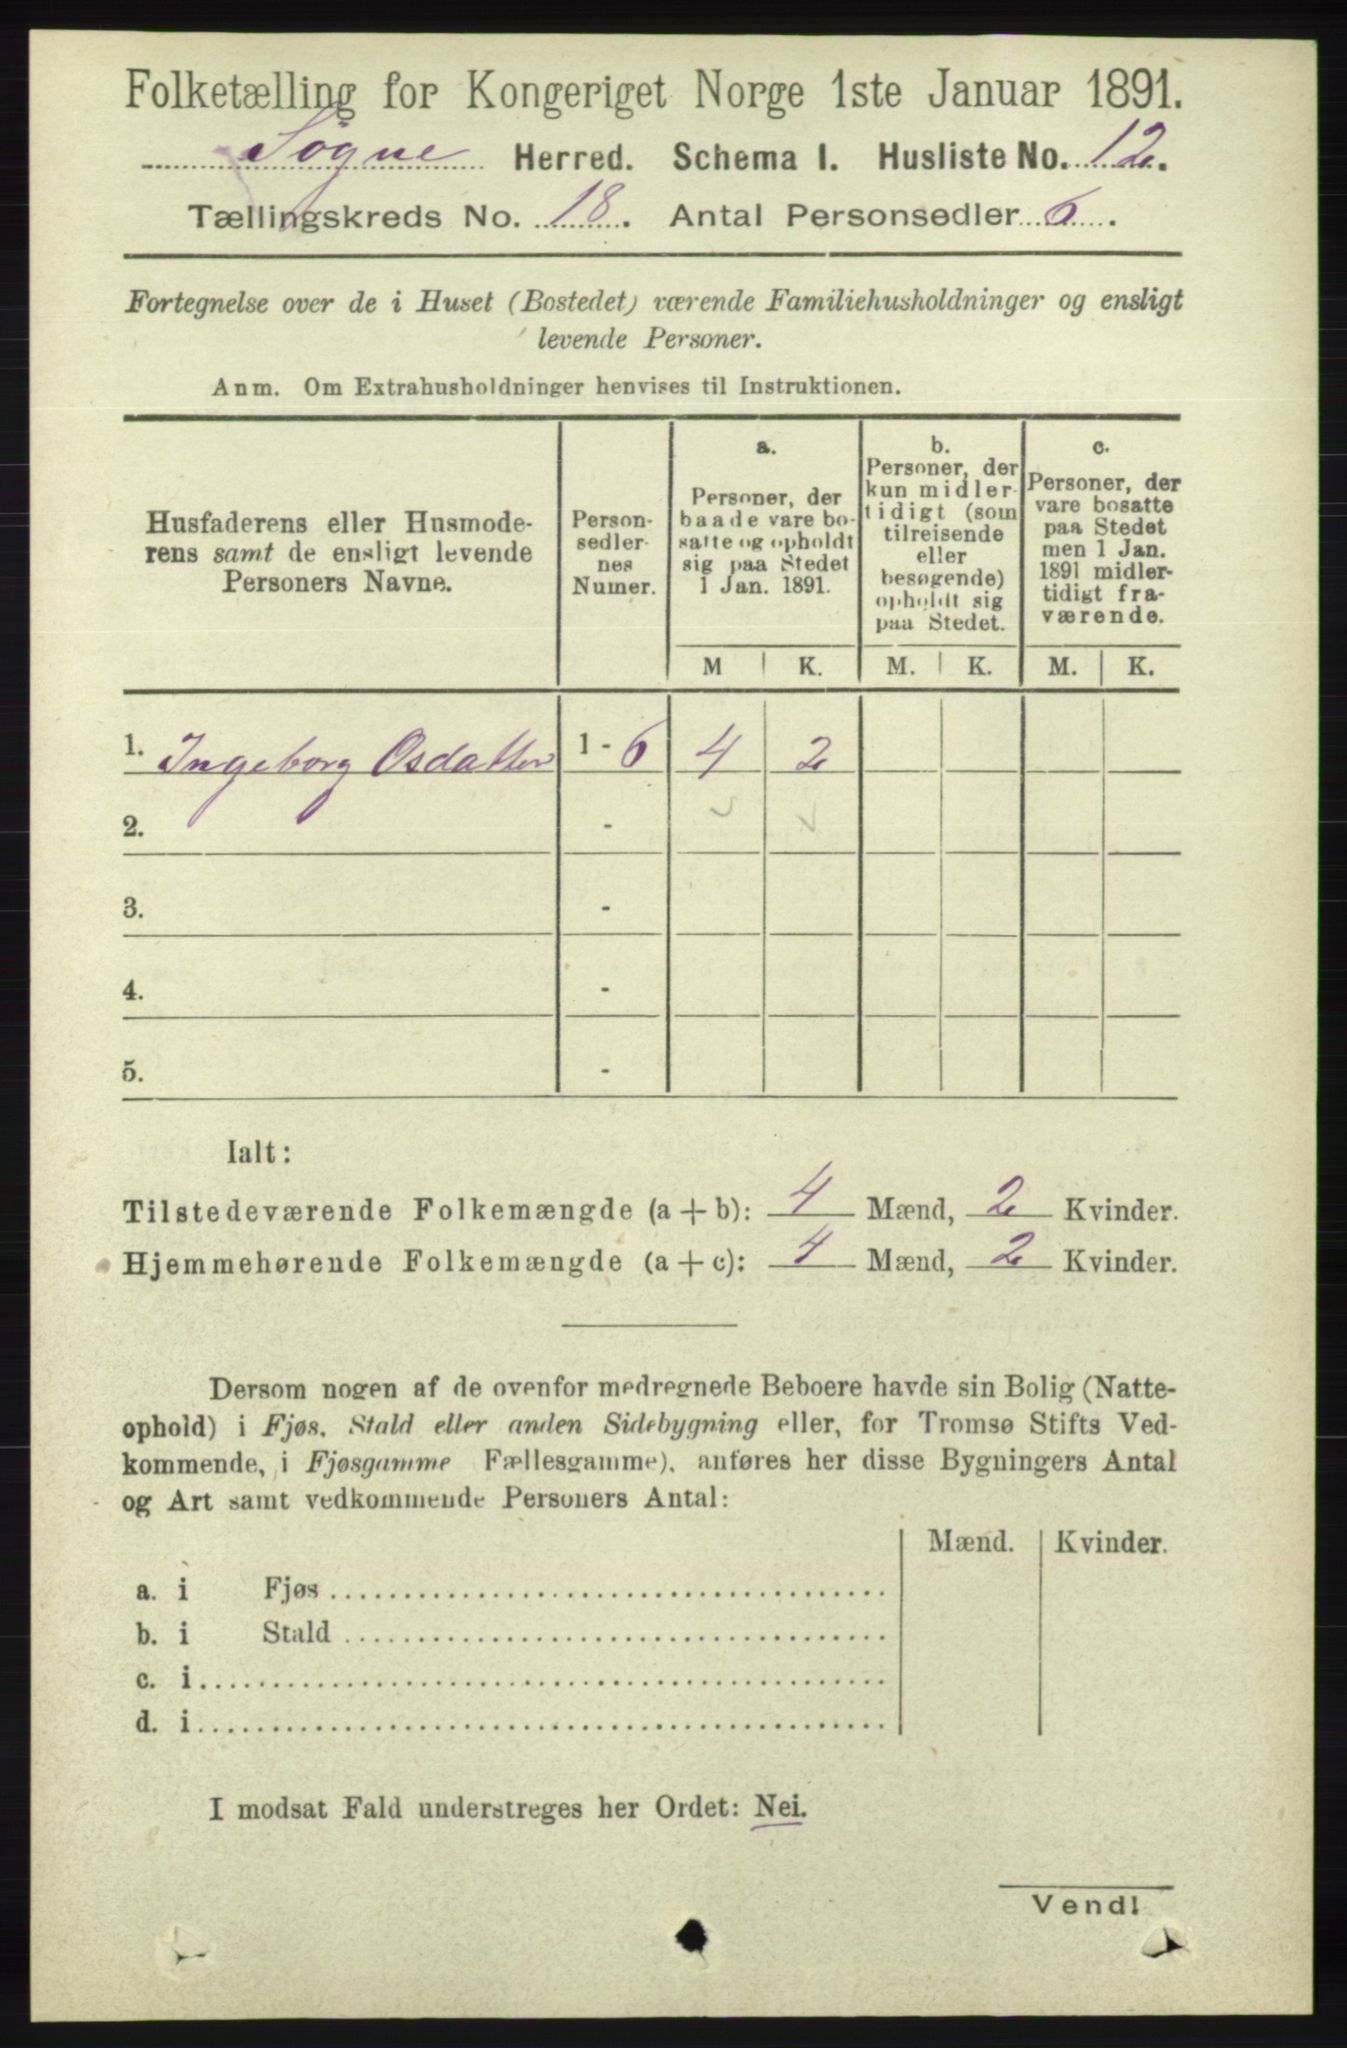 Folketælling for Kongeriget Norge 1ste Januar 1891.
Søgne Herred. Schema I. Husliste No. 12.
Tællingskreds No. 18. Antal Personsedler 6.
Fortegnelse over de i Huset (Bostedet) værende Familiehusholdninger og ensligt
levende Personer.
Anm. Om Extrahusholdninger henvises til Instruktionen.
Husfaderens eller Husmode-
rens samt de ensligt levende
Personers Navne.
Person-
sedler-
nes
Numer.
a.
Personer, der
baade vare bo-
satte og opholdt
sig paa Stedet
1 Jan. 1891.
b.
Personer, der
kun midler-
tidigt (som
tilreisende
eller
besøgende)
opholdt sig
paa Stedet.
c.
Personer, der
vare bosatte
paa Stedet
men 1 Jan.
1891 midler-
tidigt fra-
værende.
M K. M. K. M. K.
1. Ingeborg Osdatter 1 - 6 4 2
2. -
3. -
4. -
5. -
Ialt:
Tilstedeværende Folkemængde (a + b): 4 Mænd, 2 Kvinder.
Hjemmehørende Folkemængde (a + c): 4 Mænd, 2 Kvinder.
Dersom nogen af de ovenfor medregnede Beboere havde sin Bolig (Natte-
ophold) i Fjøs, Stald eller anden Sidebygning eller, for Tromsø Stifts Ved-
kommende, i Fjøsgamme Fællesgamme), anføres her disse Bygningers Antal
og Art samt vedkommende Personers Antal:
Mænd. Kvinder.
a. i Fjøs
b. i Stald
c. i
d. i
I modsat Fald understreges her Ordet: Nei.
Vend!